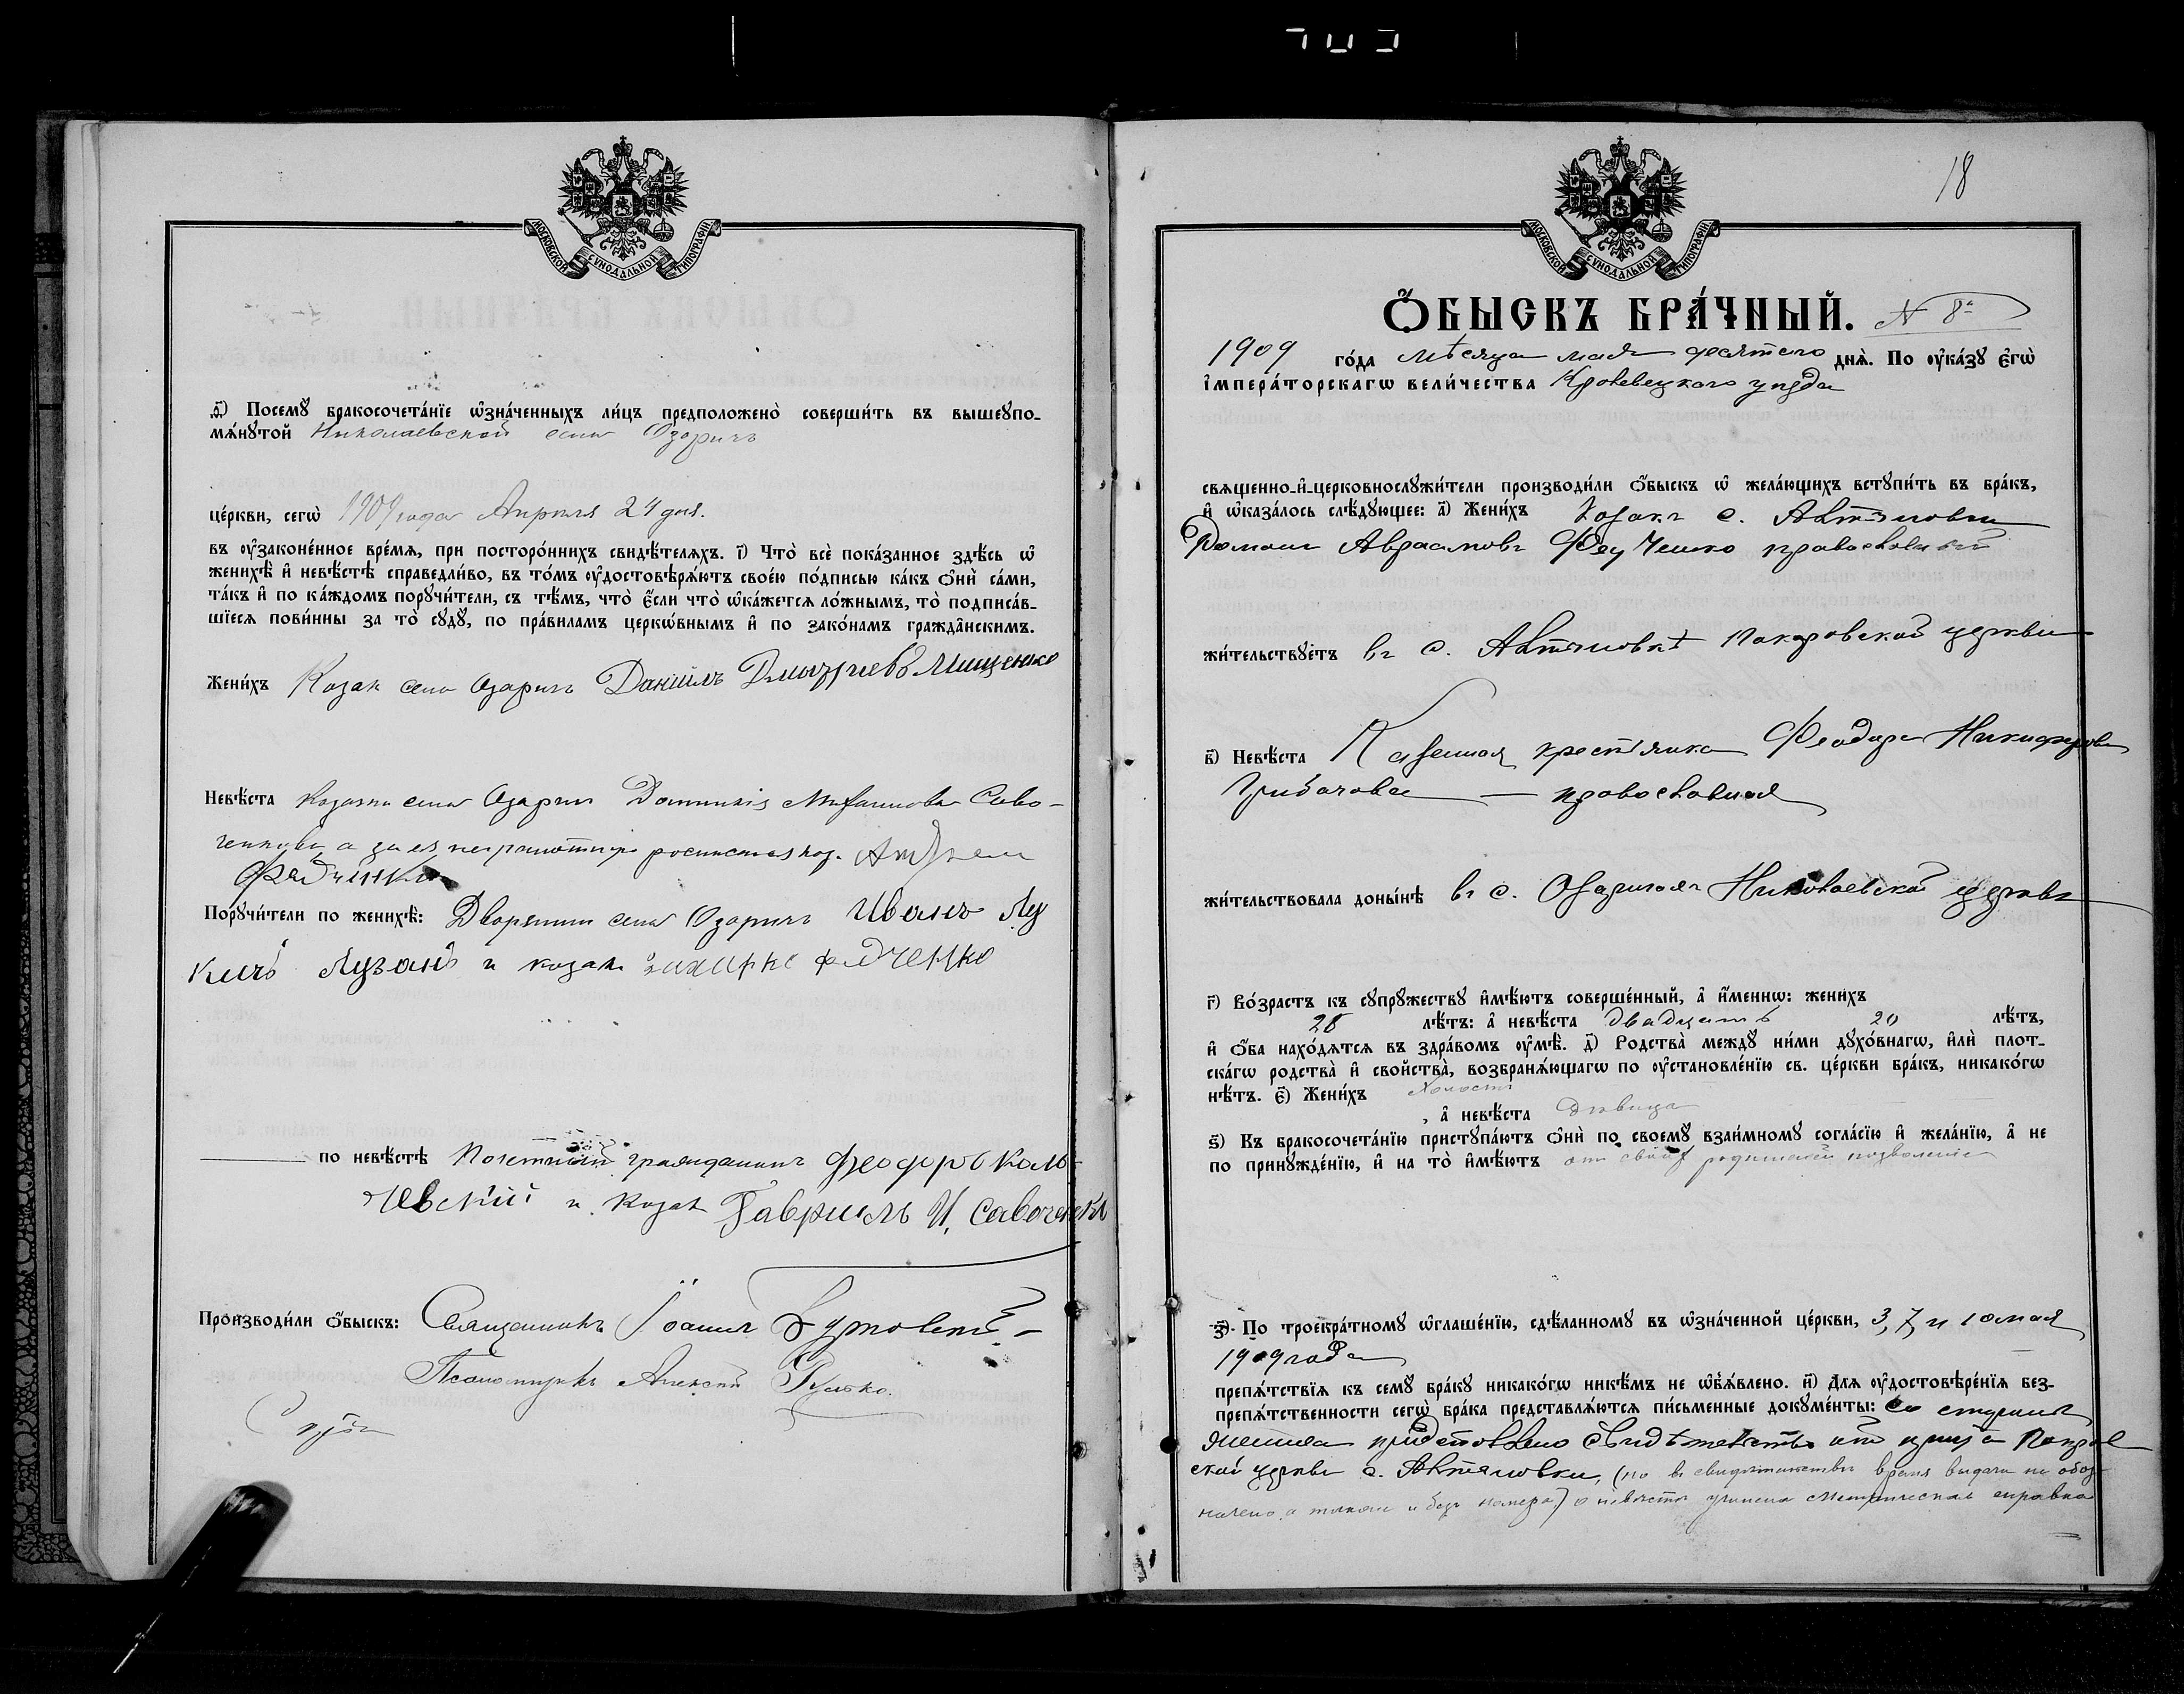 МОСКОВСКОЙ СѴНОДАЛЬНОЙ ТИПОГРАФІИ
ѳ҃) Посемꙋ̀ бракосочета́нїе ѡ҆зна́ченныхъ ли́цъ предположено̀ соверши́ть въ вышеꙋпо-
мѧ́нꙋтой Николаевской села Озаричъ
це́ркви, сегѡ̀ 1909 года Апрѣля 24 дня.
въ ᲂу҆законе́нное вре́мѧ, при посторо́ннихъ свидѣ́телѧхъ. і҃) Что̀ всѐ пока́занное здѣ́сь ѡ҆
женихѣ̀ и҆ невѣ́стѣ справедли́во, въ то́мъ ᲂу҆достовѣрѧ́ютъ свое́ю по́дписью ка́къ ѻ҆нѝ са́ми,
та́къ и҆ по ка́ждомъ порꙋчи́тели, съ тѣ́мъ, что̀ є҆́сли что̀ ѡ҆ка́жетсѧ ло́жнымъ, то̀ подписа́в-
шїесѧ пови́нны за то̀ сꙋдꙋ̀, по пра́виламъ церкѡ́внымъ и҆ по зако́намъ гражда̑нскимъ.
Жени́хъ Козак села Озаричъ Даніилъ Дмытріевъ Мищенко
Невѣ́ста козачка села Озаричъ Саво-
ченкова а за ея неграмотную росписался коз. Андрей
Федченко
Порꙋчи́тели по женихѣ̀: Дворянин села Озаричъ Иванъ Лу
кичъ Лузанъ и козак захарко федченко
по невѣ́стѣ Почетный гражданинъ Феодоръ Каль-
чевскій и козак Гавриилъ И. Савоченко
Произвѡди́ли ѻ҆́быскъ: Священникъ Іоаннъ
Псаломщикъ Алексѣй
18
МОСКОВСКОЙ СѴНОДАЛЬНОЙ ТИПОГРАФІИ
Ѻ҆́БЫСКЪ БРА́ЧНЫЙ. N 8й
1909 го́да мѣсяца мая десятаго днѧ̀. По ᲂу҆ка́зꙋ є҆гѡ̀
і҆мпера́торскагѡ вели́чества Кролевецкаго уѣзда
свѧщенно-и҆-церковнослꙋжи́тели производи́ли ѻ҆́быскъ ѡ҆ жела́ющихъ встꙋпи́ть въ бра́къ,
и҆ ѡ҆каза́лось слѣ́дꙋющее: а҃) Жени́хъ Козакъ с. Алтыновки
Романъ Авраамовъ Федченко православный
жи́тельствꙋетъ въ с. Алтыновкѣ Покровской церкви
в҃) Невѣ́ста Казенная крестянка Феодора Никифорова
Грибачова — православная
жи́тельствовала доны́нѣ въ с. Озаричахъ Николаевской церкви
г҃) Во́зрастъ къ сꙋпрꙋжествꙋ и҆мѣ́ютъ соверше́нный, а҆ и҆́меннѡ: жени́хъ
28 лѣ́тъ: а҆ невѣ́ста двадцать 20 лѣ́тъ,
и҆ ѻ҆́ба нахо́дѧтсѧ въ здра́вомъ ᲂу҆мѣ̀. д҃) Родства̀ междꙋ̀ ни́ми дꙋхо́внагѡ, и҆лѝ плот-
ска́гѡ родства̀ и҆ свойства̀, возбранѧ́ющагѡ по ᲂу҆становле́нїю св. це́ркви бра́къ, никако́гѡ
нѣ́тъ. є҃) Жени́хъ холостъ
, а҆ невѣ́ста дѣвица
ѕ҃) Къ бракосочета́нїю пристꙋпа́ютъ ѻ҆нѝ по своемꙋ̀ взаи́мномꙋ согла́сїю и҆ жела́нїю, а҆ не
по принꙋжде́нїю, и҆ на то̀ и҆мѣ́ютъ отъ своихъ родителей позволеніе
з҃) По троекра́тномꙋ ѡ҆глаше́нїю, сдѣ́ланномꙋ въ ѡ҆зна́ченной це́ркви, 3, 7, и 10 мая
1909 года
препѧ́тствїѧ къ семꙋ̀ бра́кꙋ никако́гѡ никѣ́мъ не ѡ҆б̾ѧ́влено. и҃) Длѧ ᲂу҆достовѣре́нїѧ без-
препѧ́тственности сегѡ̀ бра́ка представлѧ́ютсѧ пи́сьменные докꙋме́нты: Со стороны
жениха представлено свидѣтельство отъ причта Покров
ской церкви с. Алтыновки, (но въ свидѣтельствѣ время выдачи не обоз
начено, а также и безъ номера) о невѣстѣ учинена метрическая справка